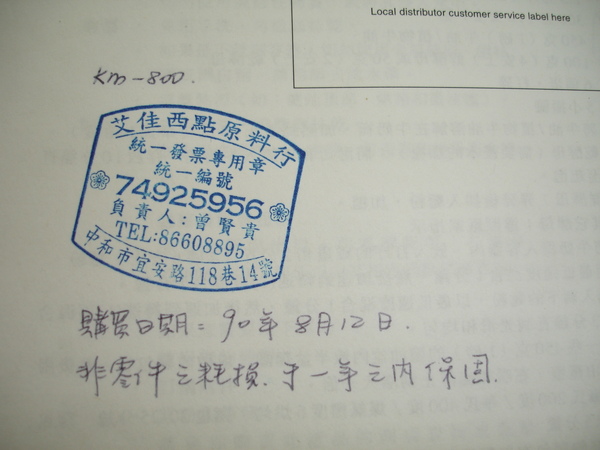 Local distributor customer service label here
KM-800.
艾佳西點原料行
統一發票專用章
統一編號
74925956
負責人:曾賢貴
TEL:86608895
中和市宜安路118巷14號
購買日期:90年8月12日.
非零件之耗損.于一年之內保固.